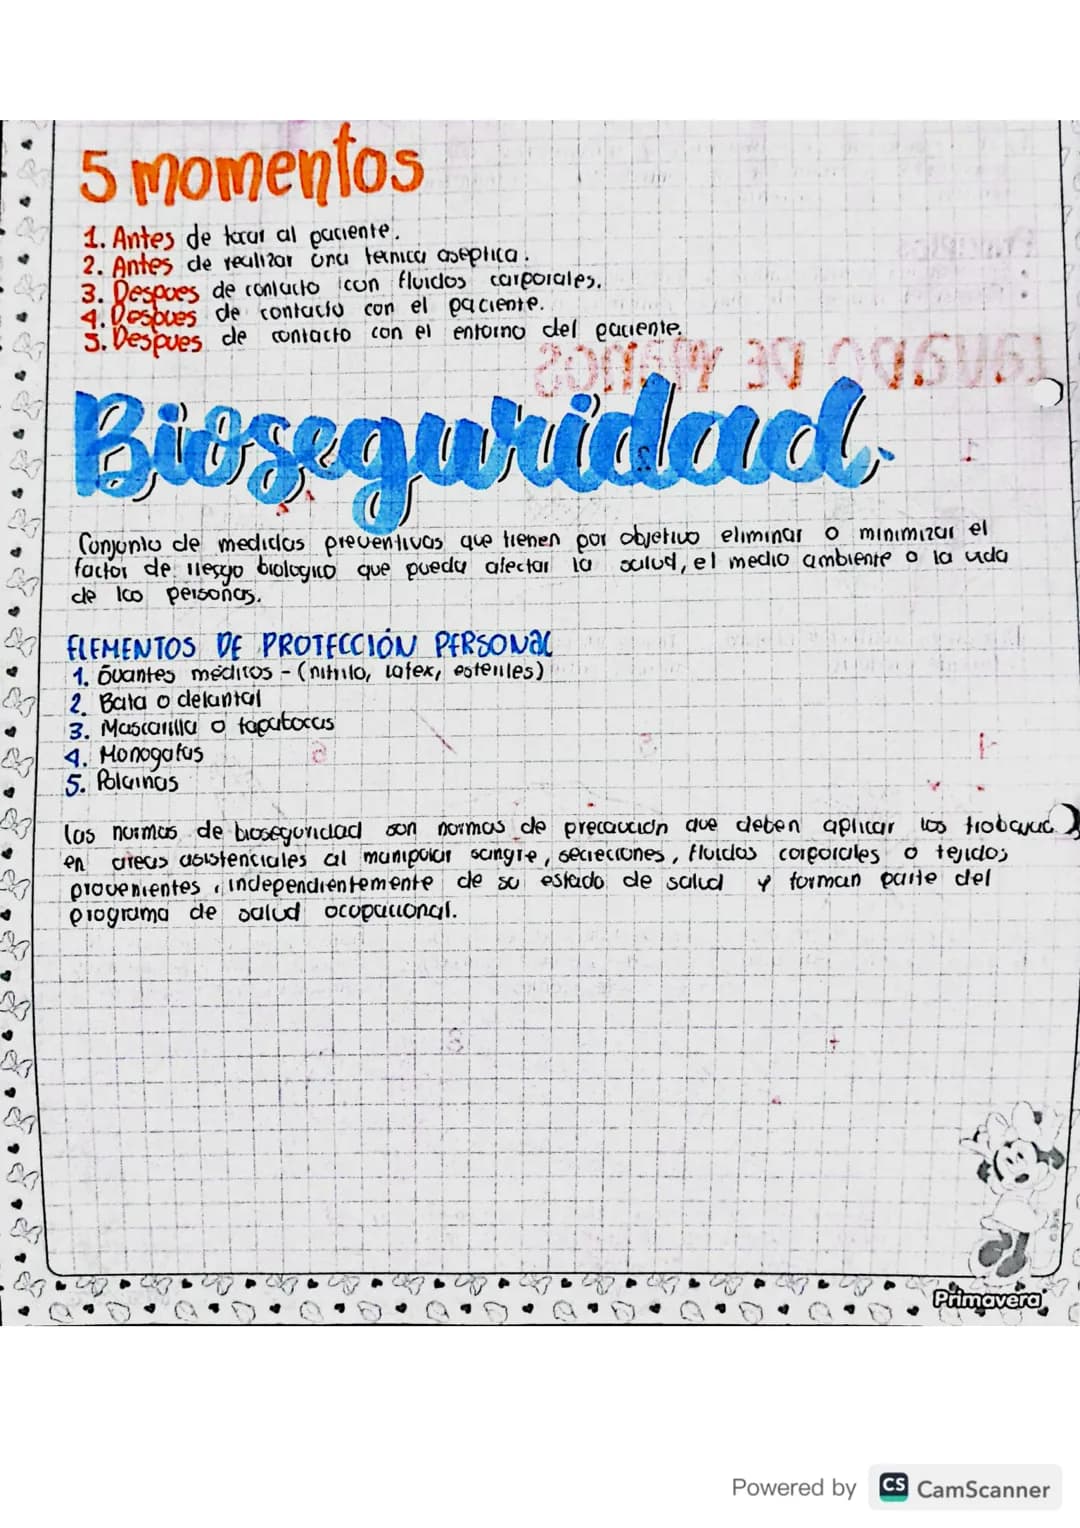 5 momentos
1. Antes de tocar al paciente.
2. Antes de realizar una tecnica aseptica.
3. Despues de contacto con fluidos corporales.
4. Despues de contacto con el paciente.
5. Despues de contacto con el entorno del paciente.
LAVADO DE MANOS
Bioseguridad.
Conjunto de medidas preventivas que tienen por objetivo eliminar o minimizar el
factor de riesgo biologico que pueda afectar la salud, el medio ambiente o la vida
de las personas.
ELEMENTOS DE PROTECCIÓN PERSONAL
1. Guantes médicos - (nitrilo, latex, esteriles)
2. Bata o delantal
3. Mascarilla o tapabocas
4. Monogafas
5. Polainas
las normas de bioseguridad son normas de precaución que deben aplicar los trabajad
en areas asistenciales al manipular sangre, secreciones, fluidos corporales o tejidos
provenientes, independientemente de su estado de salud y forman parte del
programa de salud ocupacional.
Primavera
Powered by CS CamScanner